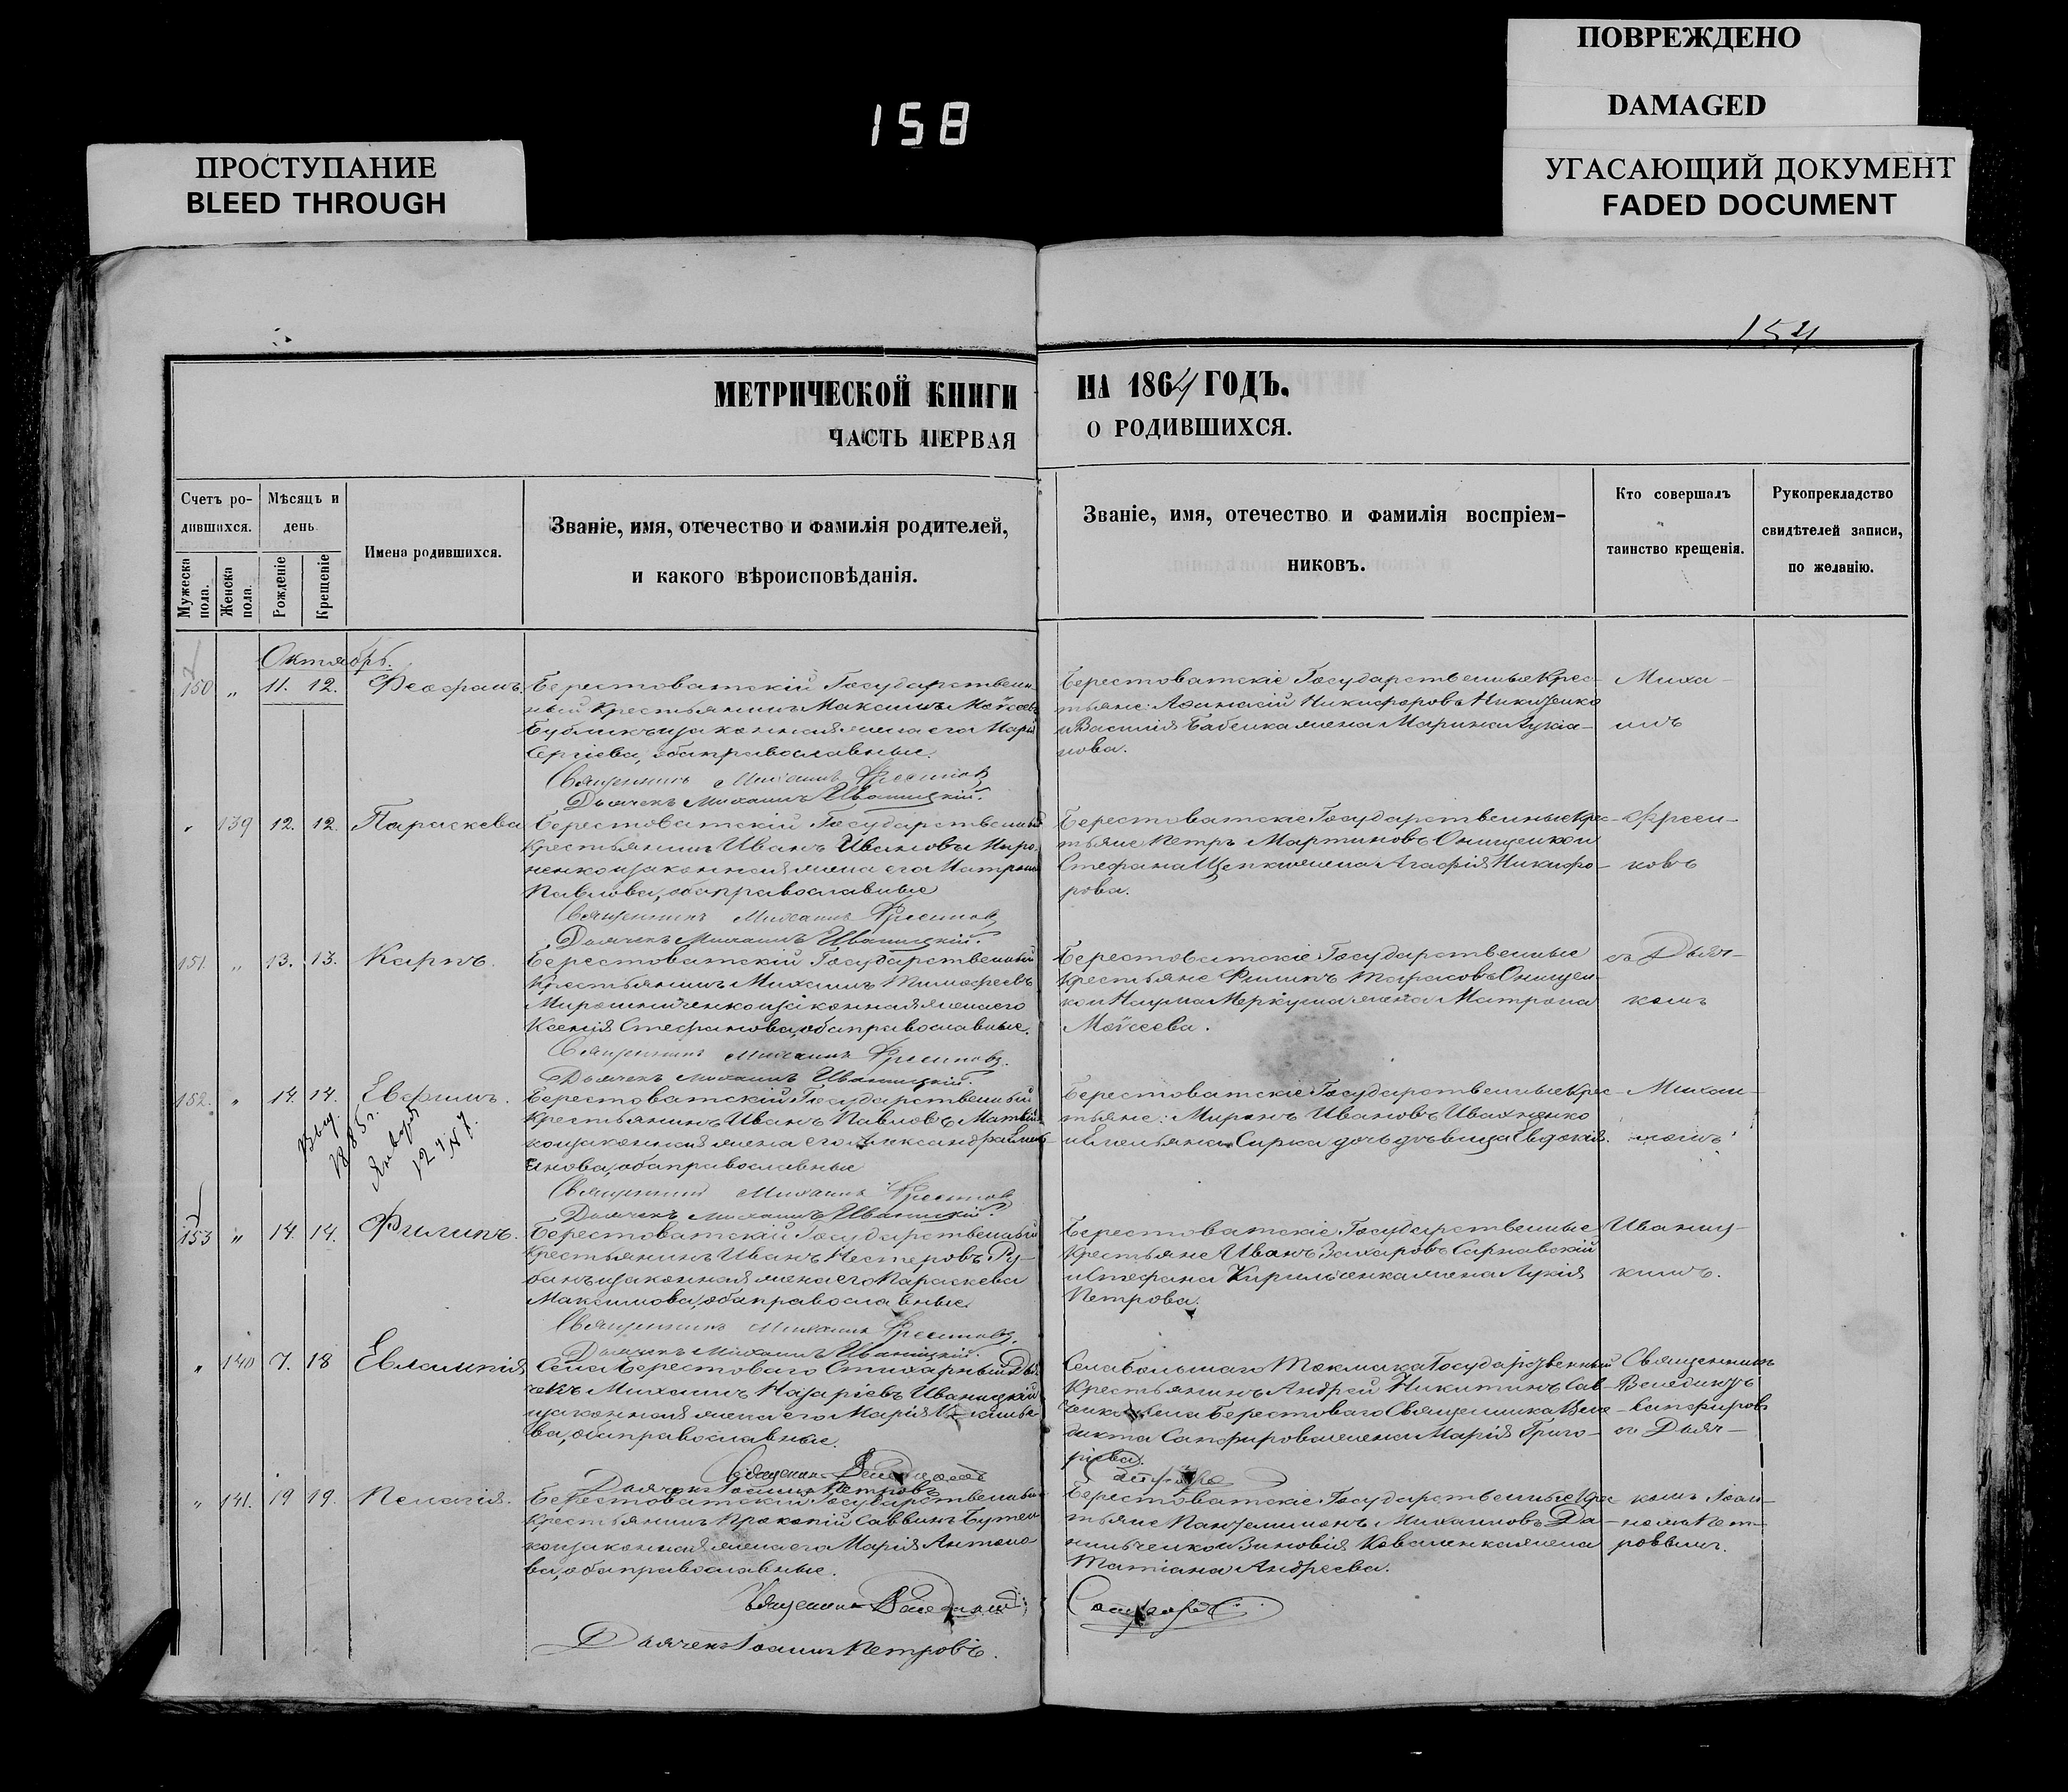 ПОВРЕЖДЕНО
DAMAGED
158
ПРОСТУПАНИЕ
BLEED THROUGH
УГАСАЮЩИЙ ДОКУМЕНТ
FADED DOCUMENT
154
МЕТРИЧЕСКОЙ КНИГИ НА 1864 ГОДЪ.
ЧАСТЬ ПЕРВАЯ О РОДИВШИХСЯ.
Счетъ родившихся.
Мужеска пола.
Женска пола.
Мѣсяцъ и день
Рожденіе
Крещеніе
Имена родившихся.
Званіе, имя, отечество и фамилія родителей,
и какого вѣроисповѣданія.
Званіе, имя, отечество и фамилія воспріем-
никовъ.
Кто совершалъ
таинство крещенія.
Рукоприкладство
свидѣтелей записи,
по желанію.
Октябрь.
150 " 11. 12. Феофанъ.
Берестоватскій Государствен-
ный Крестьянинъ Максимъ Моѵсеевъ
Бубликъ и законная жена его Марія
Сергіева, оба православные.
Священникъ Михаилъ
Дьячекъ Михаилъ Иваницкій.
Берестоватскіе Государственные Крес-
тьяне: Афанасій Никифоровъ
и Василія Бабенка жена Марина Лукія-
нова.
Миха-
илъ
" 139 12. 12. Параскева
Берестоватскій Государственный
Крестьянинъ Иванъ Ивановъ Миро-
ненко и законная жена его Матрона
Павлова, оба православные
Священникъ Михаилъ
Дьячекъ Михаилъ Иваницкій.
Берестоватскіе Государственные Крес-
тьяне Петръ Мартиновъ Онищенко и
Стефана жена Агафія Никифо-
рова.
151. " 13. 13. Карпъ.
Берестоватскій Государственный
Крестьянинъ Михаилъ Тимофеевъ
Мирошниченко и законная жена его
Ксенія Стефанова, оба православные.
Священникъ Михаилъ
Дьячекъ Михаилъ Иваницкій.
Берестоватскіе Государственные
Крестьяне Филиппъ Тарасовъ Онищен-
ко и Наума Меркула жена Матрона
Моѵсеева.
съ Дьяч-
комъ
152. " 14. 14. Евфимъ.
Выд.
1885 г.
Января
12 №7.
Берестоватскій Государственный
Крестьянинъ Иванъ Павловъ
ко и законная жена его Александра Емель-
янова, оба православные
Священникъ Михаилъ
Дьячекъ Михаилъ Иваницкій.
Берестоватскіе Государственные Крес-
тьяне: Миронъ Ивановъ Ивахненко
и Емельяна Сирка дочь дѣвица Евдокія.
Михаи-
ломъ
153 " 14. 14. Филипъ.
Берестоватскій Государственный
Крестьянинъ Иванъ Нестеровъ Ру-
банъ и законная жена его Параскева
Максимова, оба православные.
Священникъ Михаилъ
Дьячекъ Михаилъ Иваницкій.
Берестоватскіе Государственные
Крестьяне Иванъ Захаровъ Сарнавскій
и Стефана Кириленка жена Лукія
Петрова.
Иваниц-
кимъ.
" 140 7. 18 Евлампія
Села Берестоваго Стихарный Дья-
чекъ Михаилъ Назаріевъ Иваницкій
и законная жена его Марія
ва, оба православные.
Дьячекъ Іоаннъ Петровъ
Села Большаго Токмака Государственный
Крестьянинъ Андрей Никитинъ Сав-
ченко и села Берестоваго Священника Вене-
дикта Сапфирова жена Марія Григо-
ріева.
Священникъ
Венедиктъ
Сапфировъ
съ Дьяч-
" 141. 19 19. Пелагія.
Берестоватскій Государственный
Крестьянинъ Прокопій Саввинъ Бутен-
ко и законная жена его Марія Антоно-
ва, оба православные.
Священникъ Венедиктъ Сапфировъ
Дьячекъ Іоаннъ Петровъ.
Берестоватскіе Государственные Крес-
тьяне Пантелимонъ Михаиловъ Да-
нильченко и Зиновія Коваленка жена
Татіана Андреева.
комъ Іоан-
номъ Пет-
ровымъ.